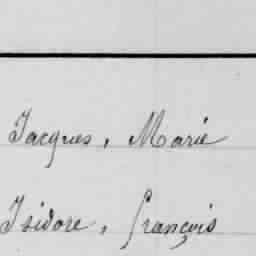 Jacques, Marie
Isidore, françois